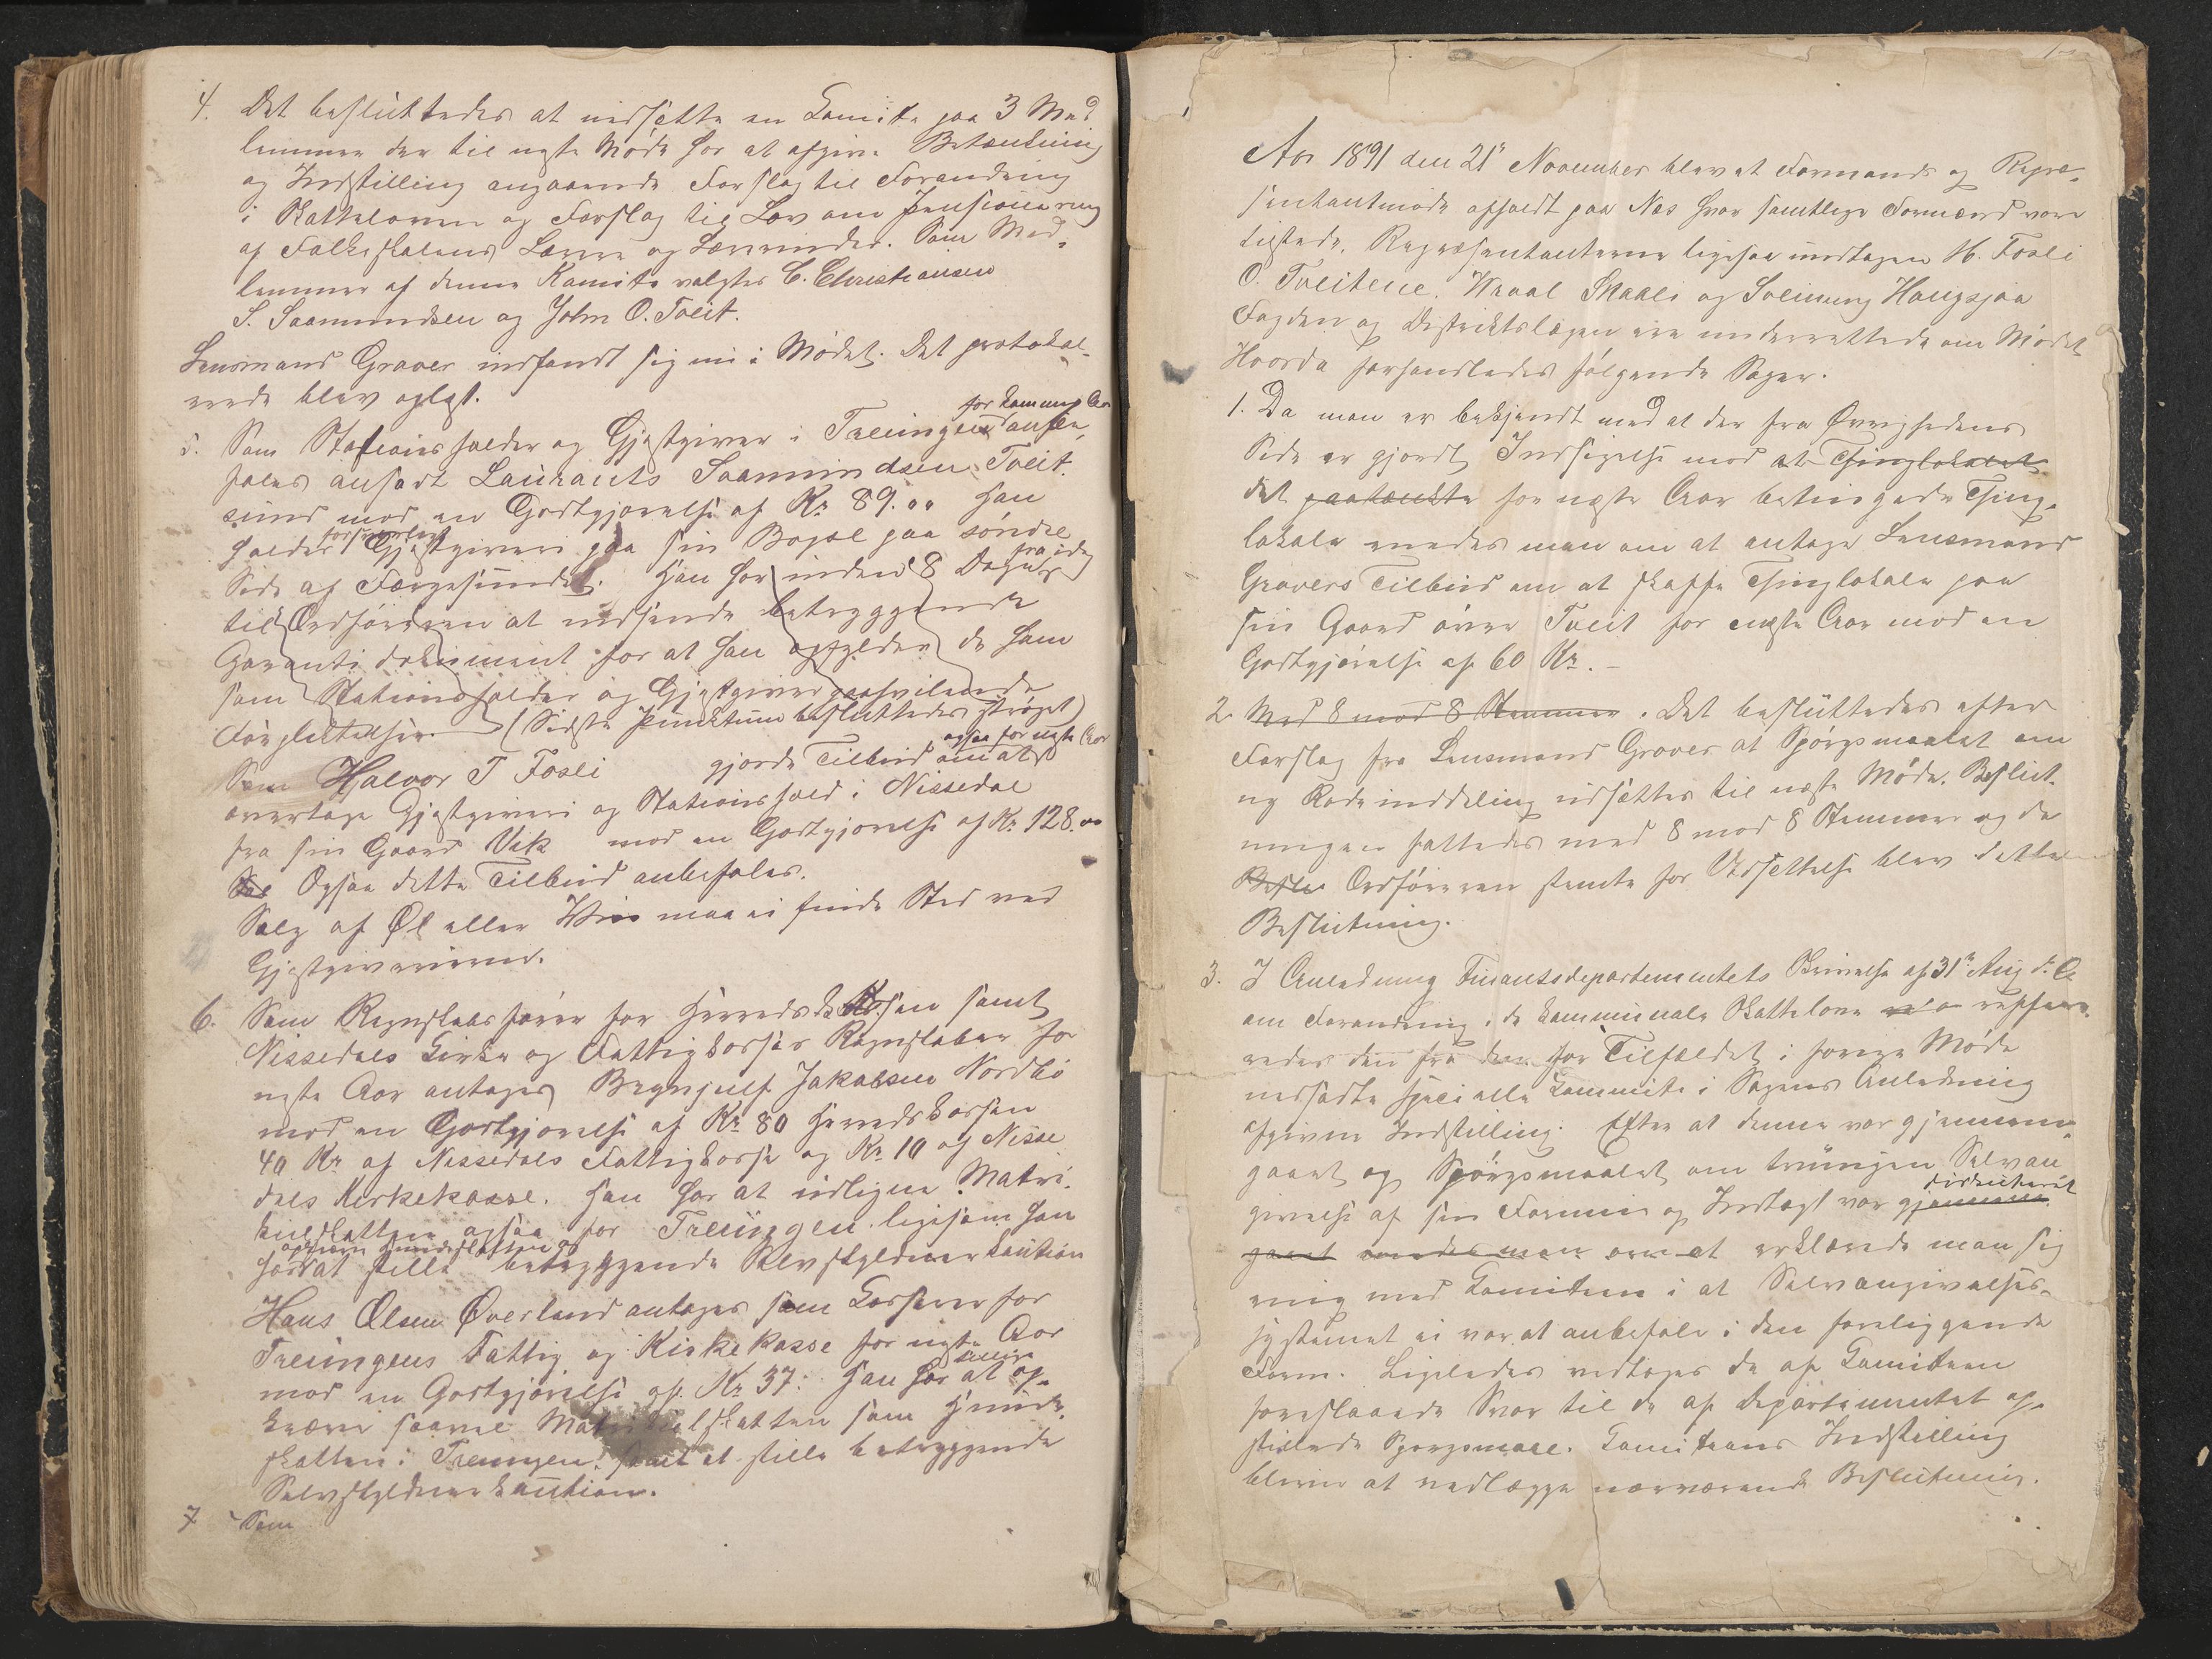 4. Det besluttedes at nedsætte en Komite paa 3 Med
lemmer der til neste Møde har at afgive Betænkning
og Indstilling angaaende Forslag til Forandring
i Skatteloven og Forslag til Lov om Pensionering
af Folkeskolens Lærere og Lærerinder. Som Med-
lemmer af denne Komite valgtes C. Christiansen
S. Saamundsen og John O. Tveit.
Lensmand Graver indfandt sig nu i Mødet. Det protokol-
erede blev oplæst.
for kommende Aar
5. Som Stationsholder og Gjæstgiver i Treungen anbe-
foles ansat Laurants Saamundsen Tveit-
sund mod en Godtgjørelse af Kr 89.00 Han
forsvarligt
holder Gjæstgiveri paa sin Bopæl paa søndre
Side af Færgesundet. Han har inden 8 Dage fra idag
til Ordføreren at indsende betryggende
Garantidokument for at han opfylder de ham
som Stationsholder og Gjæstgiver paahvilende
Forpligtelser. (Sidste Punktum besluttedes strøget)
ogsaa for neste Aar
Som Halvor T Fosli gjorde Tilbud om at
overtage Gjæstgiveri og Stationshold i Nissedal
fra sin Gaard Vik mod en Godtgjørelse af Kr 128.00
Ogsaa dette Tilbud anbefales.
Salg af Øl eller Vin maa ei finde Sted ved
Gjæstgiverierne.
6. Som Regnskabsfører for Herredskassen samt
Nissedals Kirke og Fattigkasses Regnskaber for
neste Aar antages Bergnjulf Jakobsen Nordbø
mod en Godtgjørelse af Kr 80 Herredskassen
40 Kr af Nissedals Fattigkasse og Kr 10 af Nisse
dals Kirkekasse. Han har at udligne Matri-
kulskatten ogsaa for Treungen ligesom han
opkræve Hundeskatten og
har at stille betryggende Selvskyldnerkaution
Hans Olsen Øverland antages som Kasserer for
Treungens Fattig og Kirkekasse for neste Aar
mod en Godtgjørelse af Kr 37. Han har at op-
kræve saavel Matrikulskatten som Hunde-
skatten i Treungen samt at stille betryggende
Selvskyldnerkaution.
7 Som
Aar 1891 den 21de November blev et Formands og Repræ-
sentantmøde afholdt paa Næs hvor samtlige Formænd vare
tilstede. Repræsentanterne ligesaa undtagen H. Fosli
O. Tveitene. Skaali og Sveinung Haugsjaa
Fogden og Distriktslægen ere underrettede om Mødet
Hvorda forhandledes følgende Sager.
1. Da man er bekjendt med at der fra Øvrighedens
Side er gjordt Indsigelse mod at Thinglokalet
det paatænkte for næste Aar betingede Thing-
lokale enedes man om at antage Lensmand
Gravers Tilbud om at skaffe Thinglokale paa
sin Gaard øvre Tveit for neste Aar mod en
Godtgjørelse af 60 Kr. –
2. Med 8 mod 8 Stemmer. Det besluttedes efter
Forslag fra Lensmand Graver at Spørgsmaalet om
ny Rodeinddeling udsættes til næste Møde. Beslut-
ningen fattedes med 8 mod 8 Stemmer og da
Beslu Ordføreren stemte for Udsættelse blev dette
Beslutning.
3. I Anledning Finantsdepartementets Skrivelse af 31te Aug d. A
om Forandring i de kommunale Skattelove refere-
redes den fra den for Tilfældet i forrige Møde
nedsatte specielle Kommite i Sagens Anledning
afgivne Indstilling. Efter at denne var gjennem-
gaaet og Spørgsmaalet om tvungen Selvan
diskuteret
givelse af sin Formue og Indtægt var gjennem-
gaaet enedes man om at erklærede man sig
enig med Komiteen i at Selvangivelses-
systemet ei var at anbefale i den foreliggende
Form. Ligeledes vedtages de af Komiteen
foreslaaede Svar til de af Departementet op-
stillede Spørgsmaal. Komiteens Indstilling
bliver at vedlægge nærværende Beslutning.